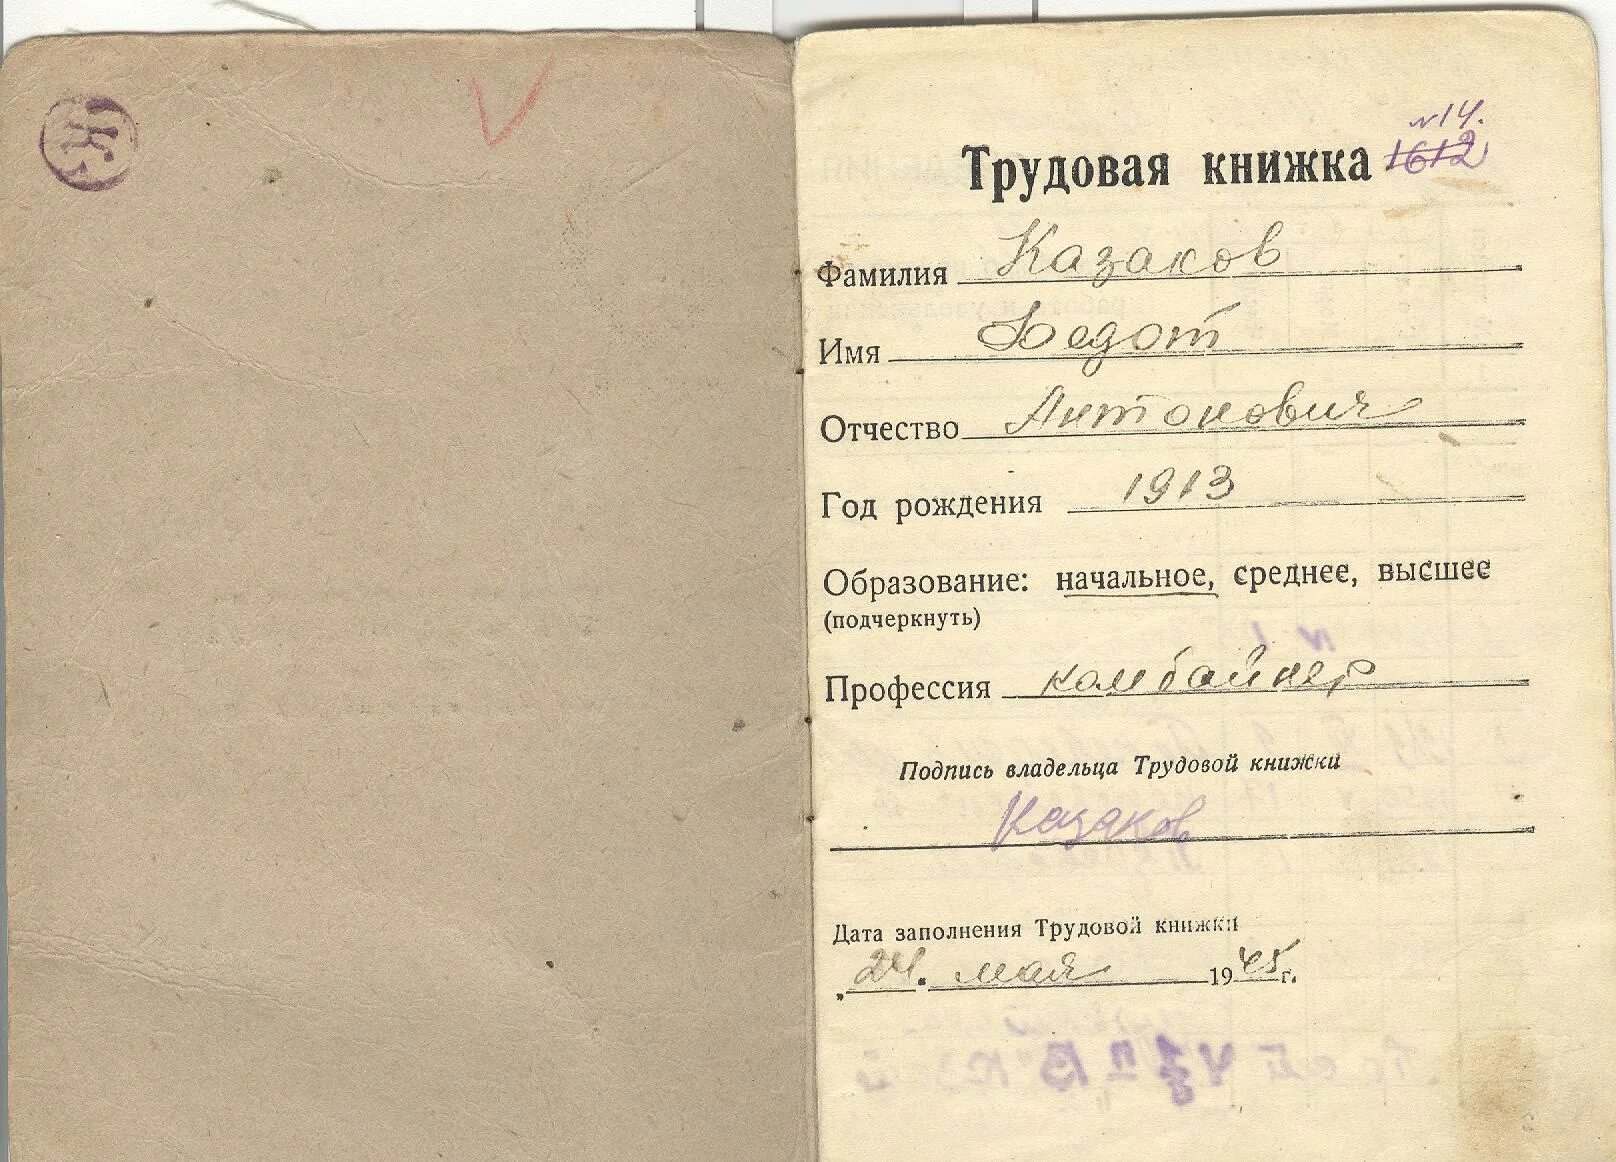 КЗ
Трудовая книжка
№14.
1612
Фамилия Казаков
Имя Федот
Отчество Антонович
Год рождения 1913
Образование: начальное, среднее, высшее
(подчеркнуть)
Профессия комбайнер
Подпись владельца Трудовой книжки
Казаков
Дата заполнения Трудовой книжки
„24." мая 1945 г.